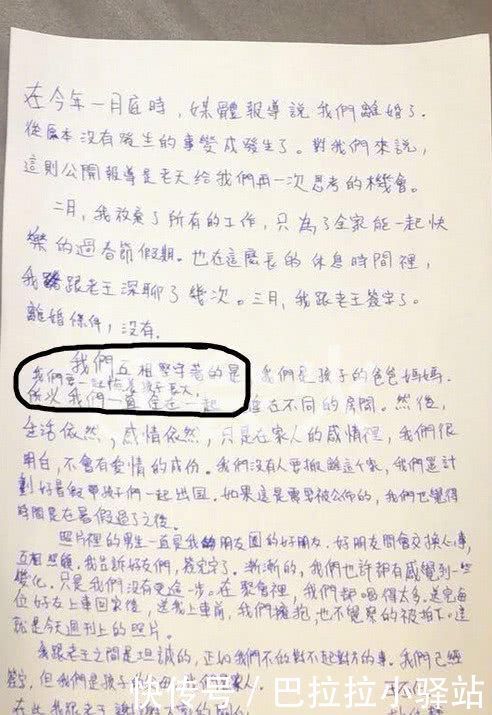 在今年一月底時，媒體報導說我們離婚了。
從原本沒有發生的事變成發生了。對我們來說，
這則公開報導是老天給我們再一次思考的機會。
二月，我放棄了所有的工作，只為了全家能一起快
樂的過春節假期。也在這麼長的休息時間裡，
我跟老王深聊了幾次。三月，我跟老王簽字了。
離婚條件，沒有。
我們互相堅守著的是，我們是孩子的爸爸媽媽。
我們要一起陪著孩子長大，
所以我們一直住在一起，住在不同的房間。然後，
生活依然，感情依然，只是在家人的感情裡，我們很
明白，不會有愛情的成份。我們沒有人要搬離這個家，我們還計
劃好暑假帶孩子們一起出國。如果這是需要被公佈的，我們也覺得
時間是在暑假過了之後。
照片裡的男生一直是我的朋友圈的好朋友，好朋友間會交換心事，
互相照顧，我告訴好友們，簽完字了。漸漸的，我們也許都有感覺到一些
變化，只是我們沒有更進一步。在聚會裡，我們都喝得太多，送完每
位好友上車回家後，送我上車前，我們擁抱，也不覺察的被拍下。這
就是今天週刊上的照片。
我跟老王之間是坦誠的，正如我們不做對不起對方的事。我們已經
簽字，但我們是孩子的家人。
在此我跟老王謝謝大家的
快传号/巴拉拉小驿站